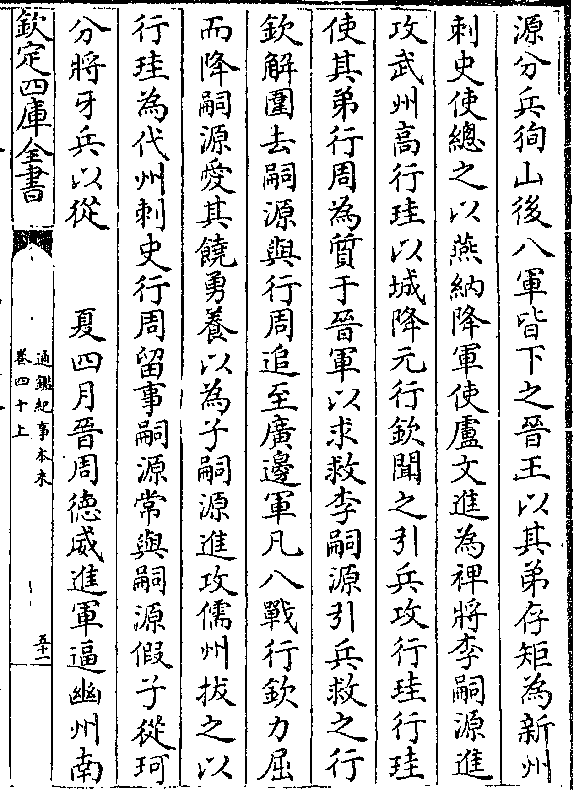 源分兵狥山後八軍皆下之晉王以其弟存矩為新州
刺史使總之以燕納降軍使盧文進為裨將李嗣源進
攻武州高行珪以城降元行欽聞之引兵攻行珪行珪
使其弟行周為質于晉軍以求救李嗣源引兵救之行
欽解圍去嗣源與行周追至廣邊軍凡八戰行欽力屈
而降嗣源愛其饒勇養以為子嗣源進攻儒州拔之以
行珪為代州刺史行周留事嗣源常與嗣源假子從珂
分將牙兵以從　　夏四月晉周德威進軍逼幽州南
欽定四庫全書
通鑑紀事本末
卷四十上
五十一